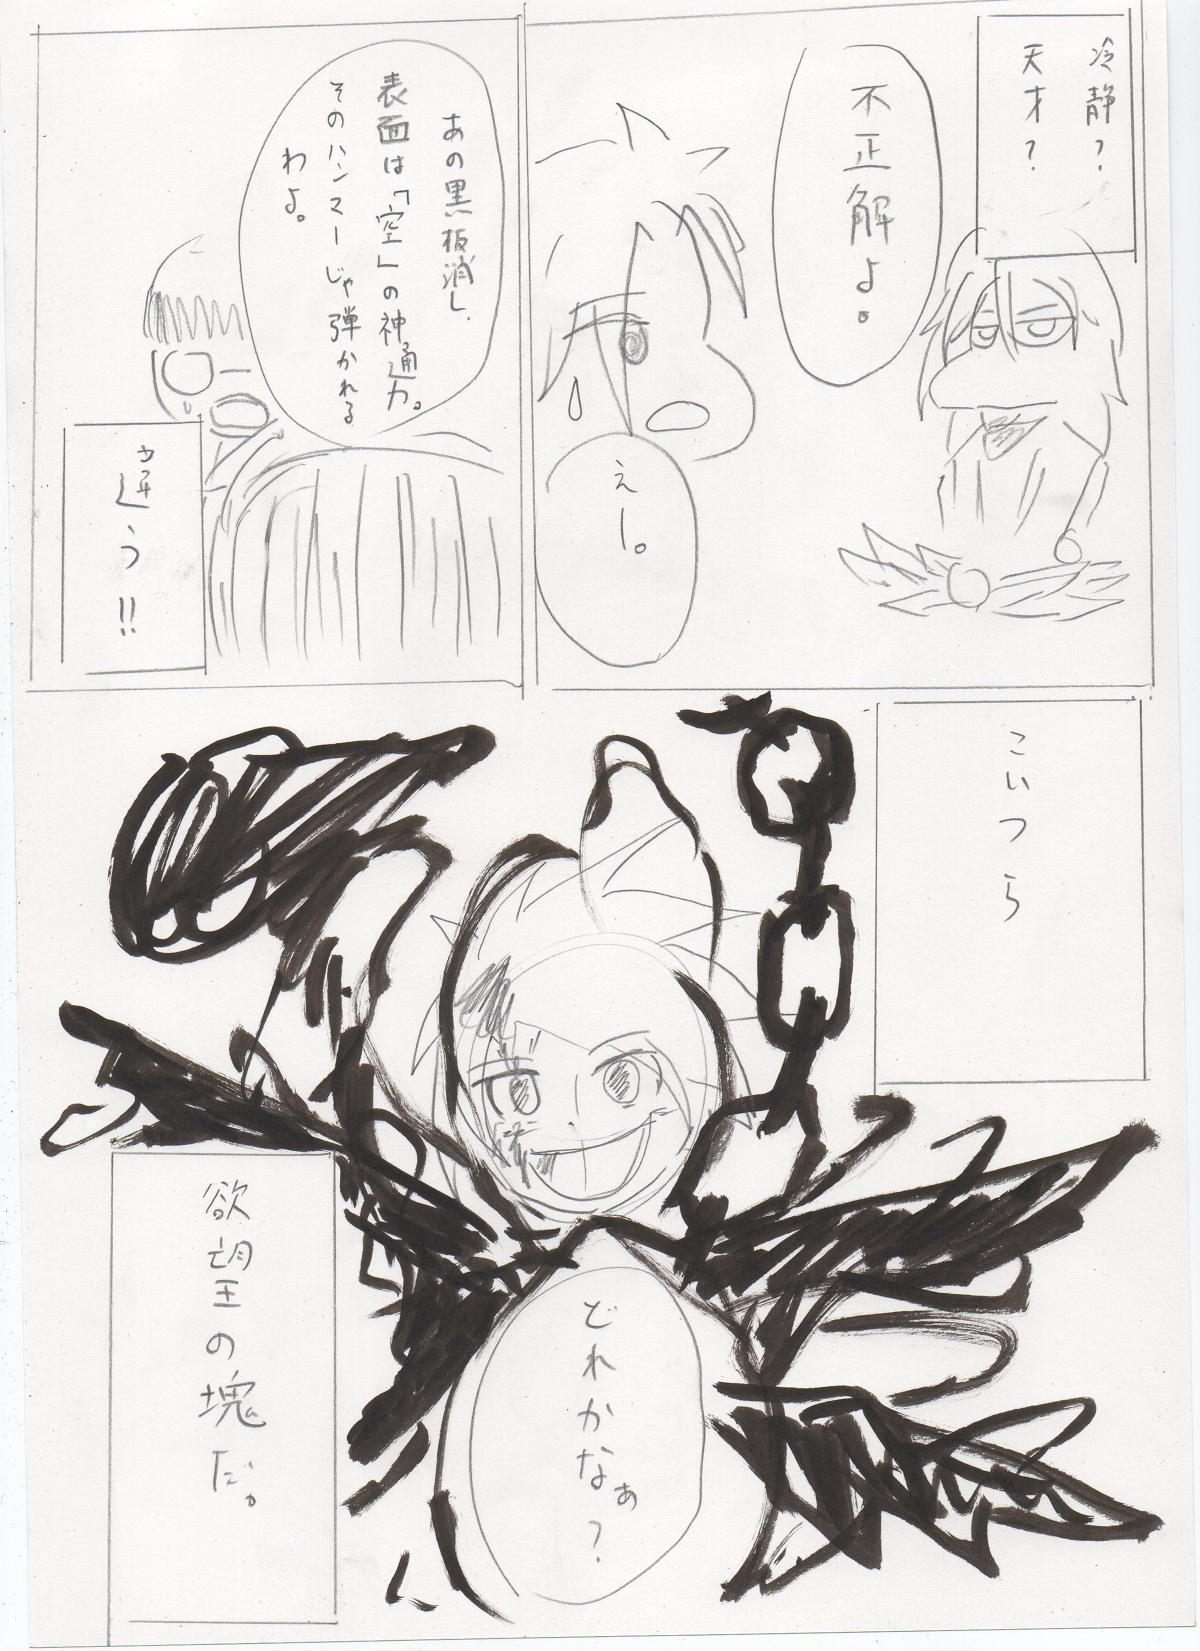 冷静?
天才?
不正解よ。
えー。
あの黒板消し、
表面は「空」の神通力。
そのハンマーじゃ弾かれる
わよ。
違う!!
こいつら
どれかなぁ?
欲望の塊だ。